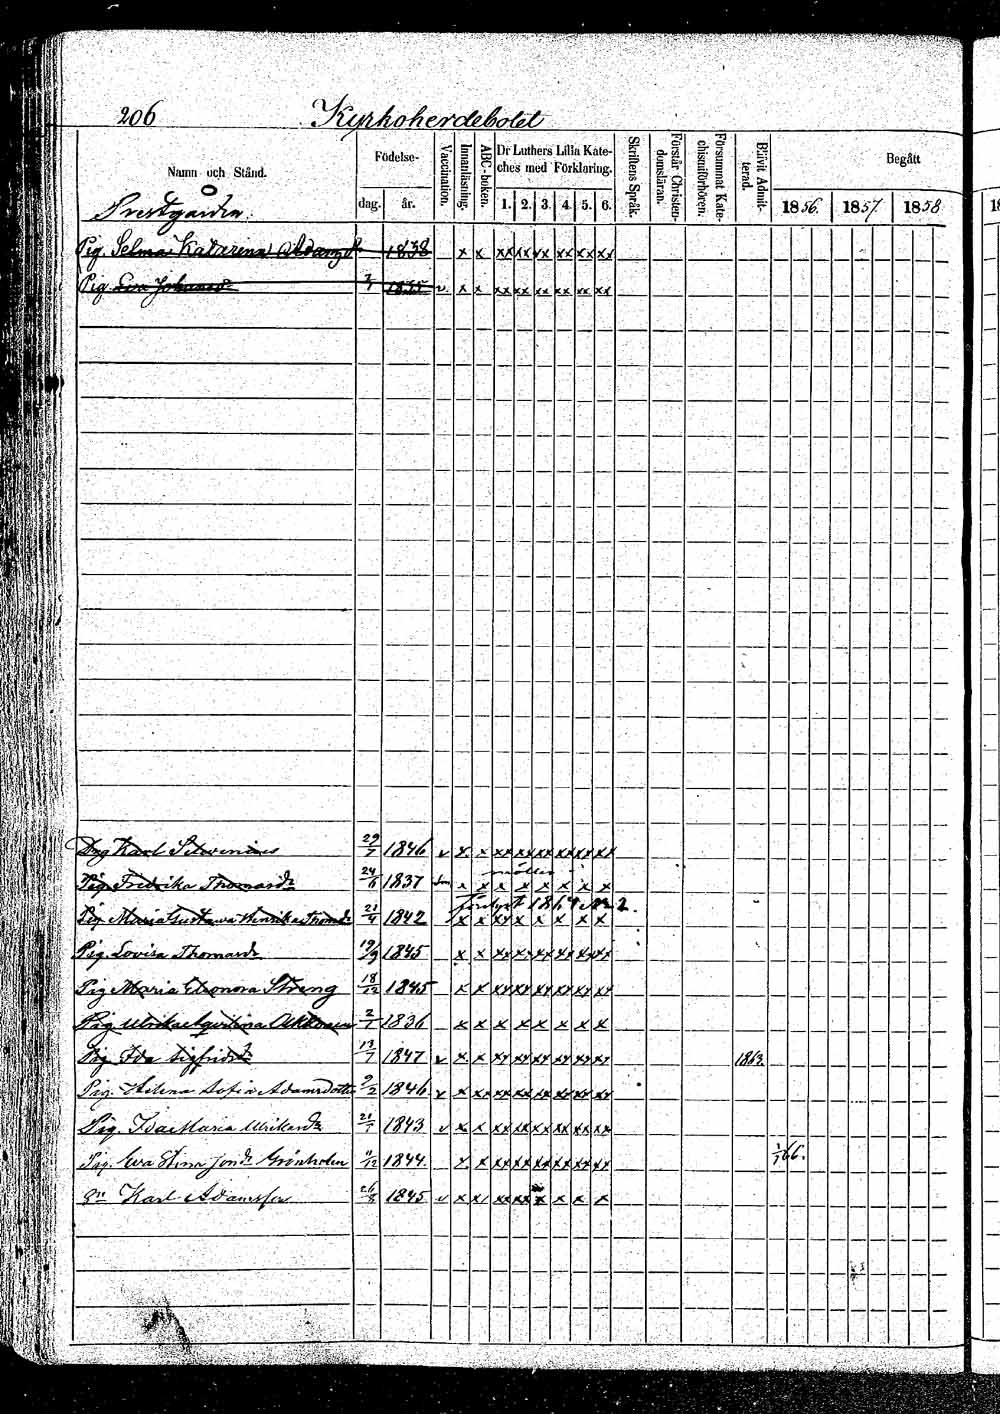 206 Kyrkoherdebolet
Namn och Stånd.
Födelse-
dag. år.
Vaccination.
Innanläsning.
ABC-boken.
Dr Luthers Lilla Kate-
ches med Förklaring.
1. 2. 3. 4. 5. 6.
Skriftens Språk.
Förstår Christen-
domsläran.
Försummat Kate-
chismiförhören.
Blivit Admit-
terad.
Begått
1856. 1857. 1858
Prestgården.
Pig. Selma Katarena 1838 x x xx xx xx xx xx xx
Pig Eva Johansdr 1835 v. x x xx xx xx xx xx xx
Drg Karl 29/7 1846 v x. x xx xx xx xx xx xx
Pig. Fredrika Thomasdr 24/6 1837 x x x x x x x x
Pig Maria Gustava Henrika Thomdr 21/4 1842 x x xx x x x x x
Pig. Lovisa Thomasdr 19/9 1845 x x xx xx xx xx xx xx
Pig Maria Eleonora Streng 18/12 1845 x x xx xx xx xx xx xx
Pig Ulrika 2/1 1836 x x x x x x x x
Pig Ida Sigfridsdr 13/7 1847 v x x xx xx xx xx xx xx 1863.
Pig. Helena Sofia Adamsdotter 9/2 1846 v x xx xx xx xx xx xx xx
Pig. Ida Maria Ulriksdr 21/1 1843 v x x xx xx xx xx xx xx
Pig. Eva Stina Jonsdr Grönholm 11/12 1844. x x xx xx xx xx xx xx 1/7 66.
Karl Adamsson 26/8 1845 v x x xx xx x x x x